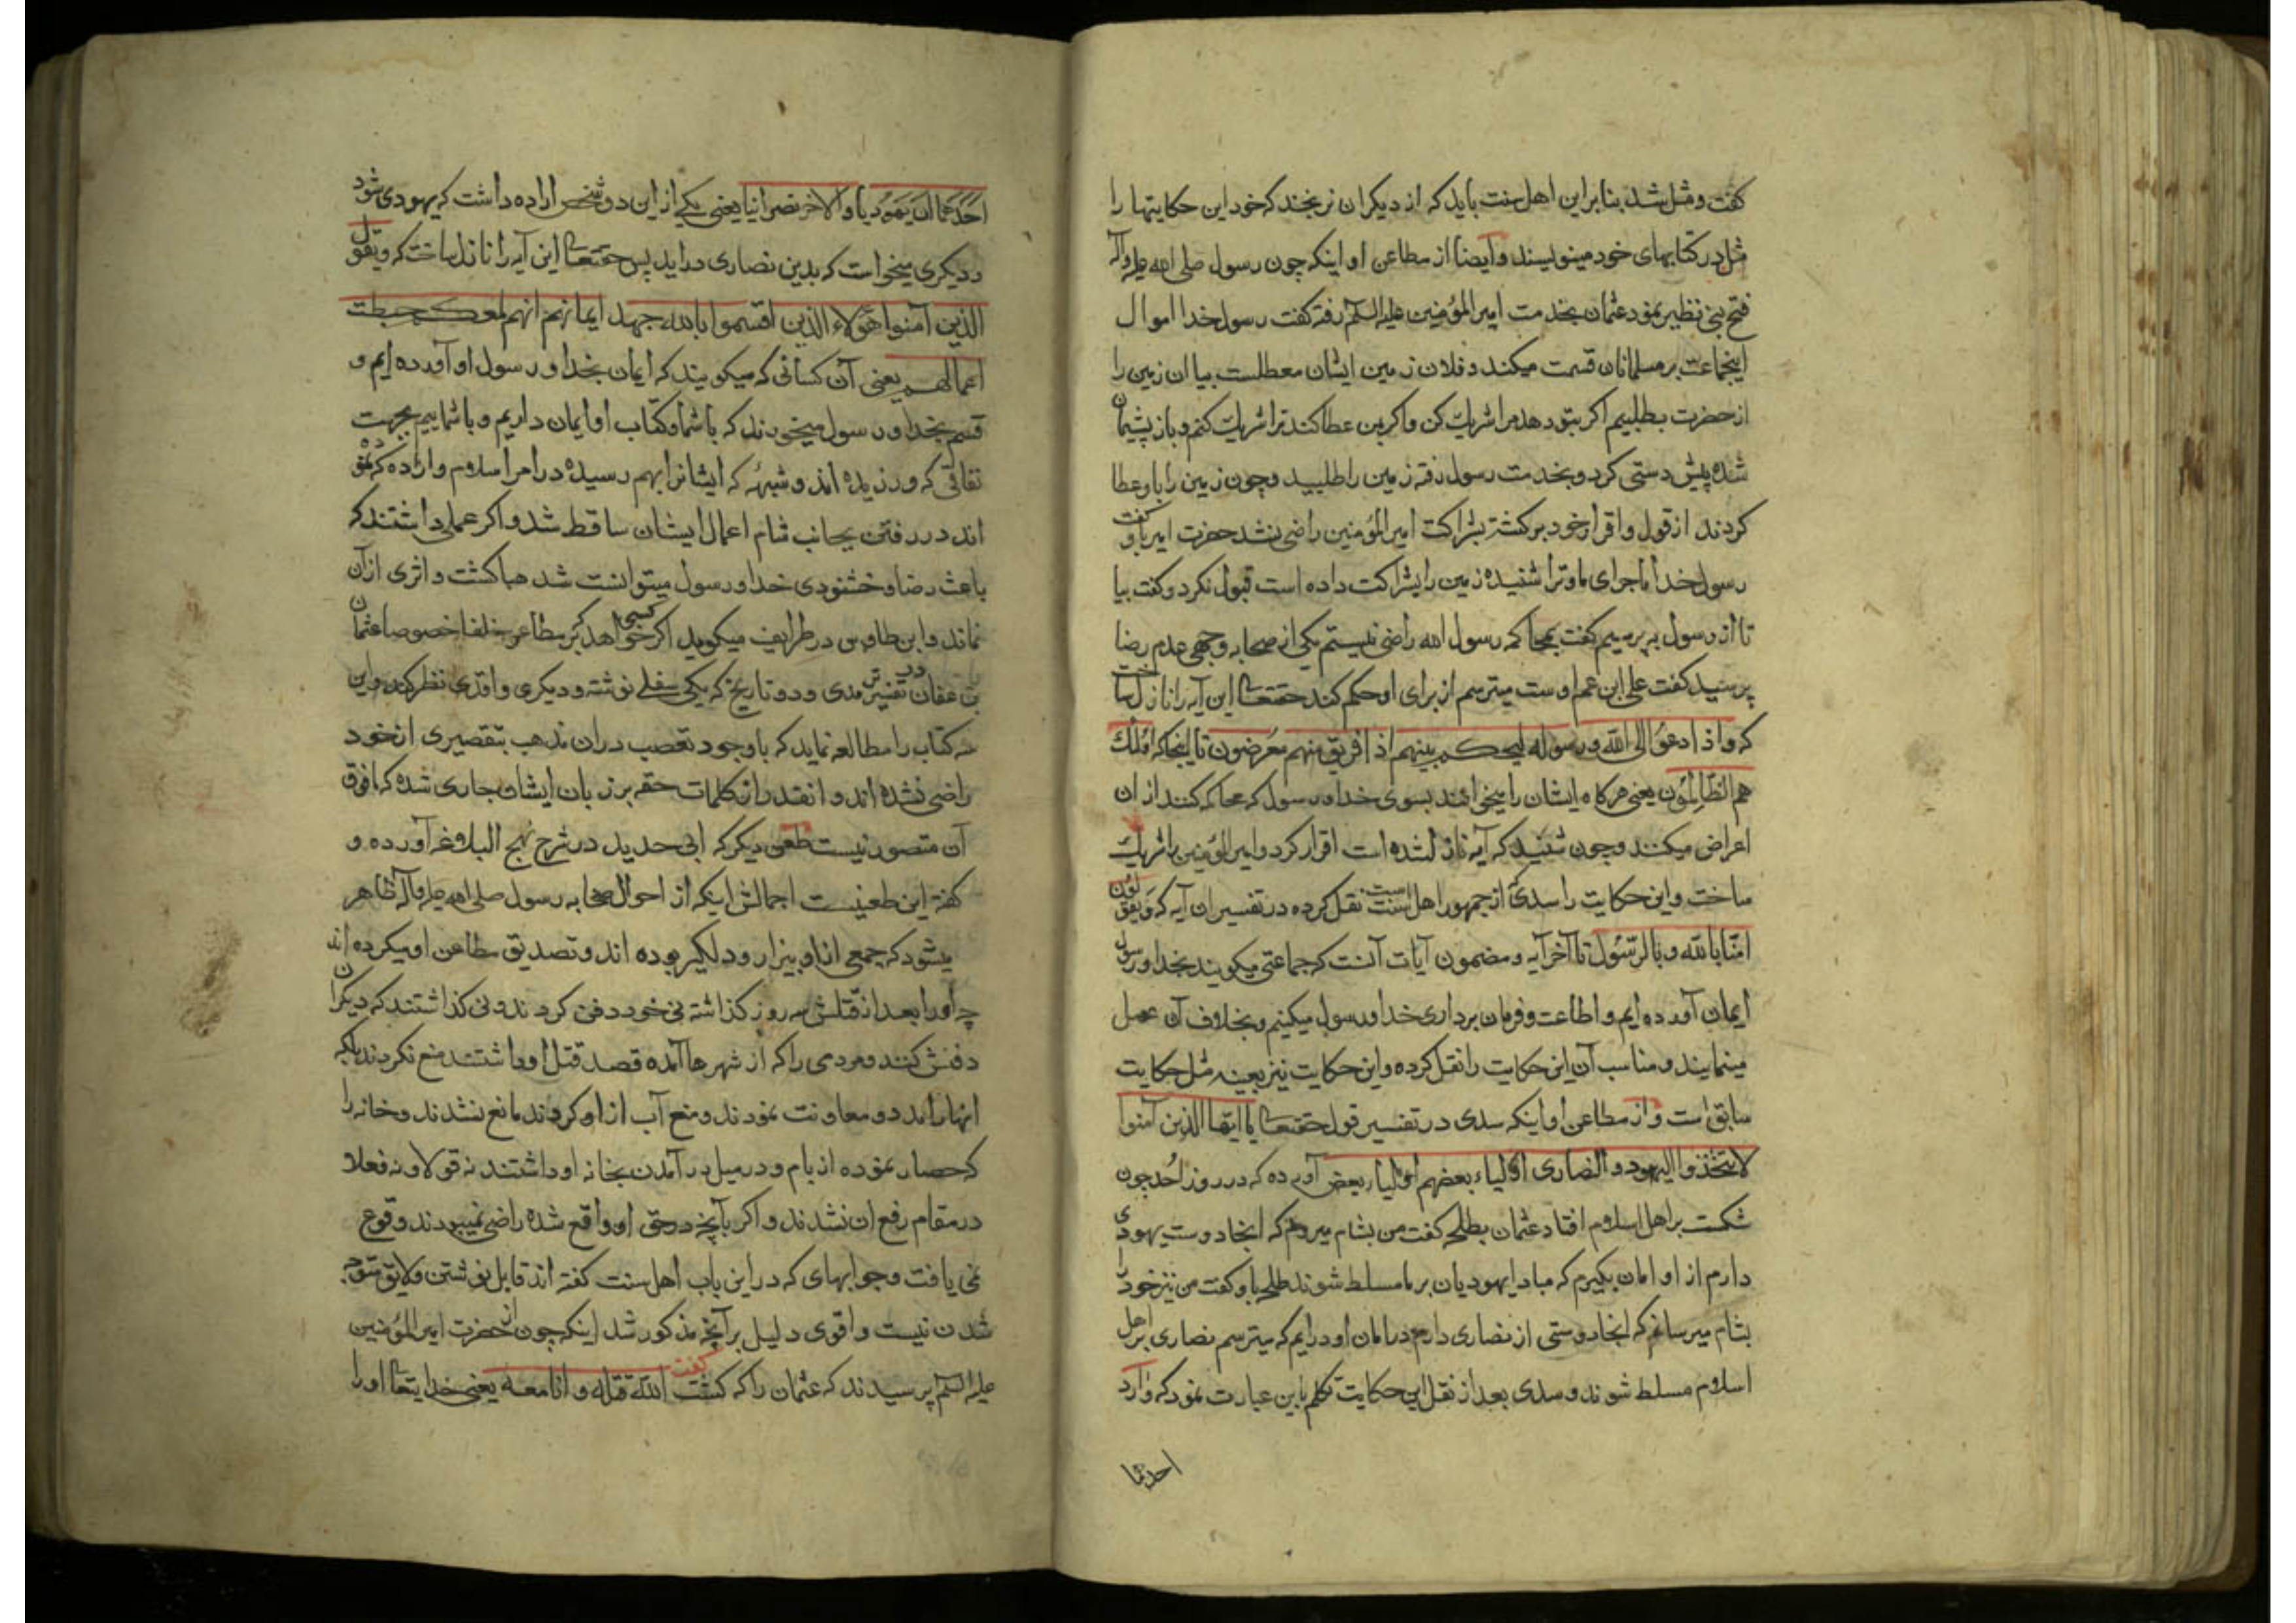 گفت و مثل شد بنا براین اهل سنت باید که از دیکران نرنجند که خود این حکایتها را
مثل در کتابهای خود مینویسند و ایضا از مطاعن او اینکه چون رسول صلی الله علیه وآله
فتح بنی نظیر نمود عثمان بخدمت امیر المؤمنین علیه السلم رفته گفت رسول خدا اموال
اینجماعت بر مسلمانان قسمت میکند و فلان زمین ایشان معطلست بیا ان زمین را
از حضرت بطلبیم اکر بتو دهد مرا شریک کن و اکر بمن عطا کند ترا شریک کنم و باز پشیمان
شده پیش دستی کرد و بخدمت رسول رفته زمین را طلبید و چون زمین را باو عطا
کردند از قول و اقرار خود برکشته بشراکت امیر المؤمنین راضی نشد حضرت امیر باو گفت
رسول خدا ماجرای ما و ترا شنیده زمین را بشراکت داده است قبول نکرد و کفت بیا
تا از رسول به پرسیم کفت بمحاکمه رسول الله راضی نیستم یکی از صحابه وجهی عدم رضا
پرسید کفت علی ابن عم اوست میترسم از برای او حکم کند حقتعالی این آیه را نازل ساخت
که واذا دعوا الی الله ورسوله لیحکم بینهم اذا فریق منهم معرضون تا اینجا که اولئک
هم الظالمون یعنی هرکاه ایشان را میخوانند بسوی خدا و رسول که محاکمه کنند از ان
اعراض میکنند و چون شنید که آیه نازل شده است اقرار کرد و امیر المؤمنین را شریک
ساخت و این حکایت را سدی از جمهور اهل سنت نقل کرده در تفسیر ان آیه که ویقولون
امنا بالله وبالرسول تا آخر آیه و مضمون آیات آنست که جماعتی میکویند بخدا و رسول
ایمان آورده ایم و اطاعت و فرمان برداری خدا و رسول میکنیم و بخلاف آن عمل
مینمایند و مناسب آن این حکایت را نقل کرده و این حکایت نیز بعینه مثل حکایت
سابق است و از مطاعن او اینکه سدی در تفسیر قول حقتعالی یا ایها الذین آمنوا
لا تتخذوا الیهود والنصاری اولیاء بعضهم اولیاء بعض آورده که در روز احد چون
شکست بر اهل اسلام افتاد عثمان بطلحه کفت من بشام میروم که انجا دوست یهودی
دارم از او امان بکیرم که مبادا یهودیان بر ما مسلط شوند طلحه باو کفت من نیز خود را
بشام میرسانم که انجا دوستی از نصاری دارم در امان او درایم که میترسم نصاری بر اهل
اسلام مسلط شوند و سدی بعد از نقل این حکایت تکلم باین عبارت نمود که واراد
احدهما
احدهما ان یتهود یا والاخر نصرانیا یعنی یکی از این دو شخص اراده داشت که یهودی شود
و دیکری میخواست که بدین نصاری دراید پس حقتعالی این آیه را نازل ساخت که ویقول
الذین آمنوا هؤلاء الذین اقسموا بالله جهد ایمانهم انهم لمعکم حبطت
اعمالهم یعنی آن کسانی که میکویند که ایمان بخدا و رسول او آورده ایم و
قسم بخدا و رسول میخورند که با شما و کتاب او ایمان داریم و با شماییم بجهت
نفاقی که ورزیده اند و شبهه که ایشانرا بهم رسیده در امر اسلام و اراده که نموده
اند در رفتن بجانب شام اعمال ایشان ساقط شد و اکر عملی داشتند که
باعث رضا و خشنودی خدا و رسول میتوانست شد هبا کشت و اثری از آن
نماند و ابن طاوس در طرایف میکوید اکر کسی خواهد که بر مطاعن خلفا خصوصا عثمان
بن عفان در تفسیر سدی و دو تاریخ که یکی سفلی نوشته و دیکری واقدی نظر کند و این
سه کتاب را مطالعه نماید که باوجود تعصب دران مذهب بتقصیری از خود
راضی نشده اند و انقدر از کلمات حقه بر زبان ایشان جاری شده که مافوق
آن متصور نیست طعن دیکر که ابی حدید در شرح نهج البلاغه آورده و
کفته این طعنیست اجمالش اینکه از احوال صحابه رسول صلی الله علیه وآله ظاهر
میشود که جمعی از او بیزار و دلکیر بوده اند و تصدیق مطاعن او میکرده اند
چه او را بعد از قتلش سه روز کذاشته نی خود دفن کردند و نی کذاشتند که دیکران
دفنش کنند و مردمی را که از شهرها آمده قصد قتل او داشتند منع نکردند بلکه
انها را مدد و معاونت نمودند و منع آب از او کردند مانع نشدند و خانه را
که حصار نموده از بام و در میل در آمدن بخانه او داشتند نه قولا و نه فعلا
در مقام رفع ان نشدند و اکر بآنچه در حق او واقع شده راضی نمیبودند وقوع
نمی یافت و جوابهای که در این باب اهل سنت کفته اند قابل نوشتن و لایق متوجه
شدن نیست و اقوی دلیل بر آنچه مذکور شد اینکه چون از حضرت امیر المؤمنین
علیه السلم پرسیدند که عثمان را که کشت گفت الله قتله وانا معه یعنی خدایتعالی او را